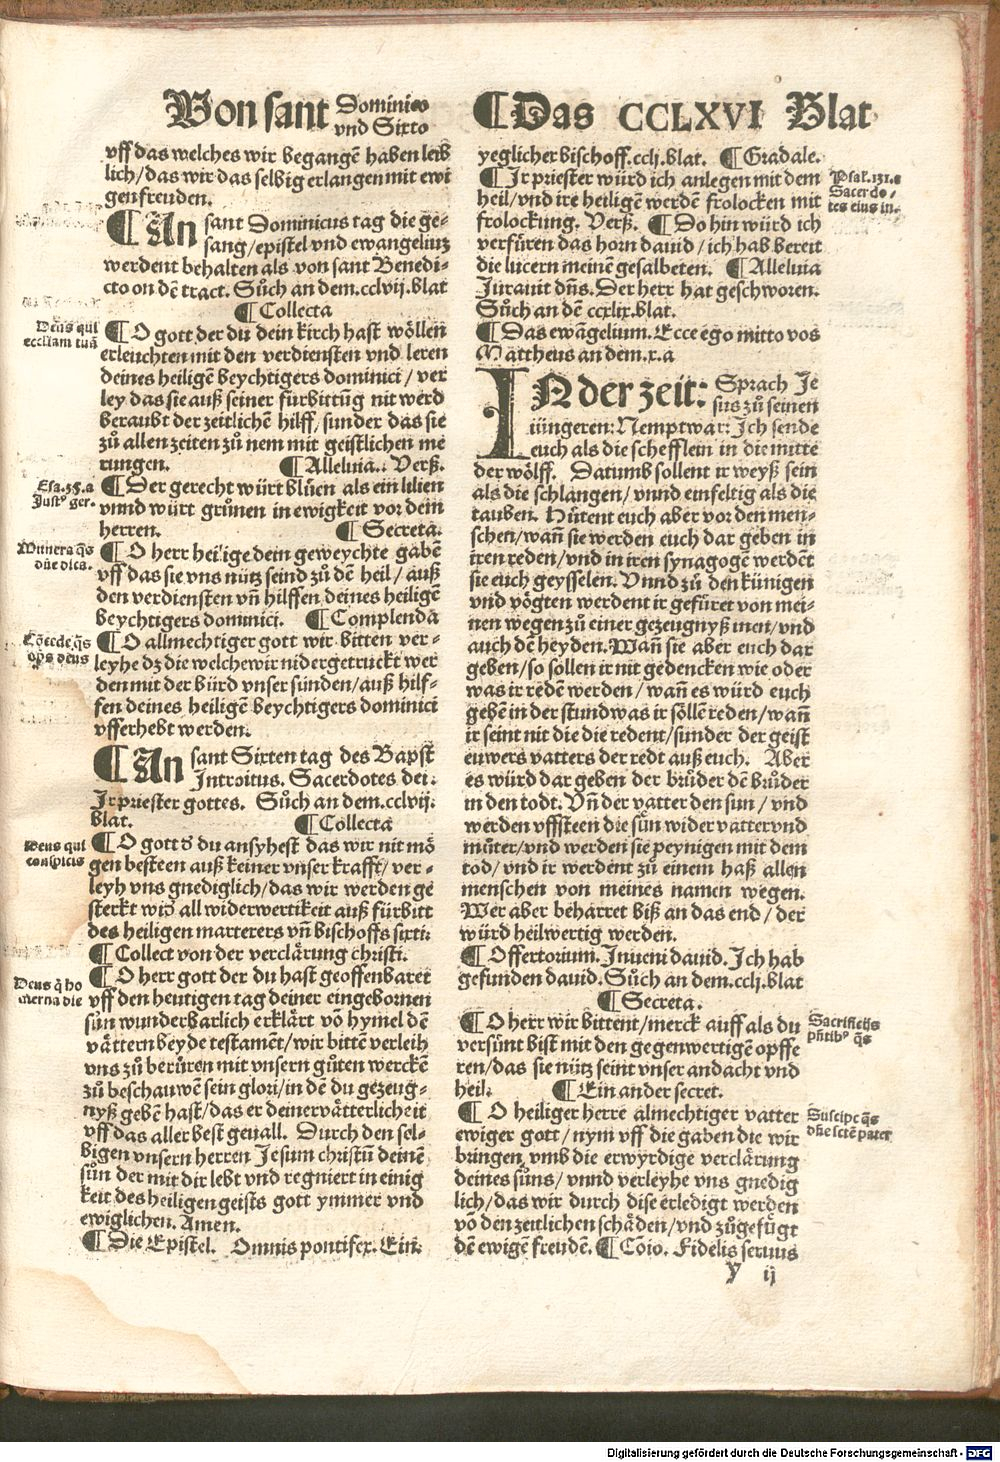 Von sant Dominico
vnd Sixto
¶ Das CCLXVI Blat
vff das welches wir begangē haben leib
lich/das wir das selbig erlangen mit ewi
gen freuden.
¶ An sant Dominicus tag die ge-
sang/epistel vnd ewangeliuz
werdent behalten als von sant Benedi-
cto on dē tract. Sůch an dem.cclvij.blat
¶ Collecta
Deus qui
eccliam tuā
¶ O gott der du dein kirch hast wöllen
erleuchten mit den verdiensten vnd leren
deines heiligē beychtigers dominici/ ver
ley das sie auß seiner fürbittūg nit werd
beraubt der zeitlichē hilff/ sunder das sie
zů allen zeiten zů nem mit geistlichen me
rungen. ¶ Alleluia.. Verß.
Esa.35.a
Just⁹ ger.
¶ Der gerecht würt blüen als ein lilien
vnnd würt grünen in ewigkeit vor dem
herren. ¶ Secreta.
Munera q̄s
dn̄e dica.
¶ O herr heilige dein geweychte gabē
vff das sie vns nütz seind zů dē heil/ auß
den verdiensten vn̄ hilffen deines heiligē
beychtigers dominici. ¶ Complendā
Cōcede q̄s
op̄s deus
¶ O allmechtiger gott wir bitten ver-
leyhe dz die welche wir nidergetruckt wer
den mit der bürd vnser sünden/auß hilf-
fen deines heiligē beychtigers dominici
vfferhebt werden.
¶ An sant Sixten tag des Bapst
Introitus. Sacerdotes dei.
Ir priester gottes. Sůch an dem.cclvij.
blat. ¶ Collecta
Deus qui
conspicis
¶ O gott d̕ du ansyhest das wir nit mö
gen besteen auß keiner vnser krafft/ ver-
leyh vns gnediglich/das wir werden ge
sterkt wid̕ all widerwertikeit auß fürbitt
des heiligen marterers vn̄ bischoffs sixti.
¶ Collect von der verclärung christi.
Deus q̄ ho
dierna die
¶ O herr gott der du hast geoffenbaret
vff den heutigen tag deiner eingebornen
sün wunderbarlich erklärt vō hymel dē
vättern beyde testamēt/wir bittē verleih
vns zů berüren mit vnsern gůten werckē
zů beschauwē sein glori/in dē du gezeug-
nyß gebē hast/das er deiner vätterlicheit
vff das aller best geuall. Durch den sel-
bigen vnsern herren Jesum christū deinē
sün der mit dir lebt vnd regniert in einig
keit des heiligen geists gott ymmer vnd
ewiglichen. Amen.
¶ Die Epistel. Omnis pontifex. Ein
yeglicher bischoff.cclj.blat. ¶ Gradale.
Psal.131.c
Sacerdo-
tes eius in.
¶ Ir priester würd ich anlegen mit dem
heil/vnd ire heiligē werdē frolocken mit
frolockung. Verß. ¶ Do hin würd ich
verfüren das horn dauid/ich hab bereit
die lucern meinē gesalbeten. ¶ Alleluia
Jurauit dn̄s. Der herr hat geschworen.
Sůch an dē ccxlix.blat.
¶ Das ewāgelium. Ecce ego mitto vos
Mattheus an dem.x.a
IN der zeit: Sprach Je
sus zů seinen
iüngeren: Nemptwar: Ich sende
euch als die schefflein in die mitte
der wölff. Darumb sollent ir weyß sein
als die schlangen/vnnd einfeltig als die
tauben. Hütent euch aber vor den men-
schen/wan̄ sie werden euch dar geben in
iren reden/vnd in iren synagogē werdēt
sie euch geysselen. Vnnd zů den künigen
vnd vögten werdent ir gefüret von mei-
nen wegen zů einer gezeugnyß inen/vnd
auch den heyden. Wan̄ sie aber euch dar
geben/so söllen ir nit gedencken wie oder
was ir redē werden/ wan̄ es würd euch
gebē in der stund was ir söllē reden/wan̄
ir seint nit die die redent/sunder der geist
euwers vatters der redt auß euch. Aber
es würd dar geben der brüder dē brůder
in den todt. Vn̄ der vatter den sun/ vnd
werden vffsteen die sün wider vatter vnd
můter/vnd werden sie peynigen mit dem
tod/vnd ir werdent zů einem haß allen
menschen von meines namen wegen.
Wer aber beharret biß an das end/ der
würd heilwertig werden.
¶ Offertorium. Inueni dauid. Ich hab
gefunden dauid. Sůch an dem.cclj.blat
¶ Secreta.
Sacrificijs
pn̄tib⁹ q̄s
¶ O herr wir bittent/merck auff als du
versünt bist mit den gegenwertigē opffe
ren/das sie nütz seint vnser andacht vnd
heil. ¶ Ein ander secret.
Suscipe q̄s
dn̄e sctē pater
¶ O heiliger herre almechtiger vatter
ewiger gott/nym vff die gaben die wir
bringen vmb die erwyrdige verclärung
deines süns/ vnnd verleyhe vns gnedig
lich/das wir durch dise erledigt werden
vō den zeitlichen schäden/vnd zůgefügt
dē ewigē freudē. ¶ Cōio. Fidelis seruus
y ij
Digitalisierung gefördert durch die Deutsche Forschungsgemeinschaft - DFG